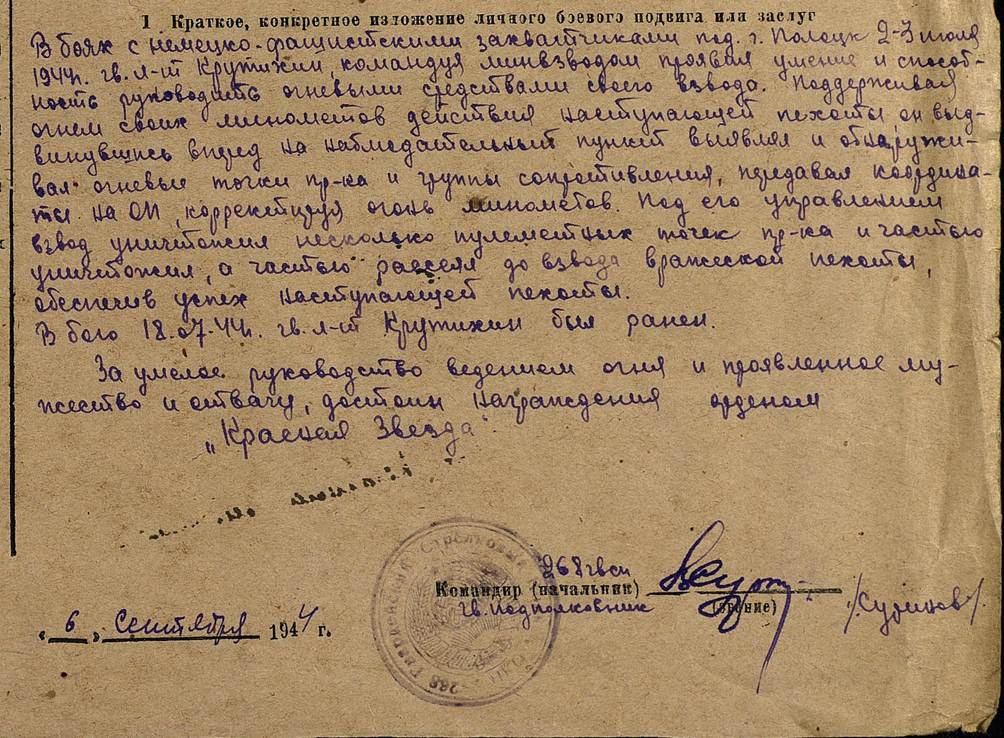 1 Краткое, конкретное изложение личного боевого подвига или заслуг
В боях с немецко-фашистскими захватчиками под г. Полоцк 2-3 июля
1944г. гв. л-нт Крутихин, командуя минвзводом проявил умение и способ-
ность руководить огневыми средствами своего взвода. Поддерживая
огнем своих минометов действия наступающей пехоты он выд-
винувшись вперед на наблюдательный пункт выявлял и обнаружи-
вал огневые точки пр-ка и группы сопротивления, передавая координа-
ты на ОП, корректируя огонь минометов. Под его управлением
взвод уничтожил несколько пулеметных точек пр-ка и частью
уничтожил, а частью рассеял до взвода вражеской пехоты,
обеспечив успех наступающей пехоты.
В бою 18.07.44г. гв. л-нт Крутихин был ранен.
За умелое руководство ведением огня и проявленное му-
жество и отвагу, достоин награждения орденом
„Красная Звезда"
268 гвсп
Командир (начальник)
гв. подполковник
(звание)
« 6 » сентября 1944 г.